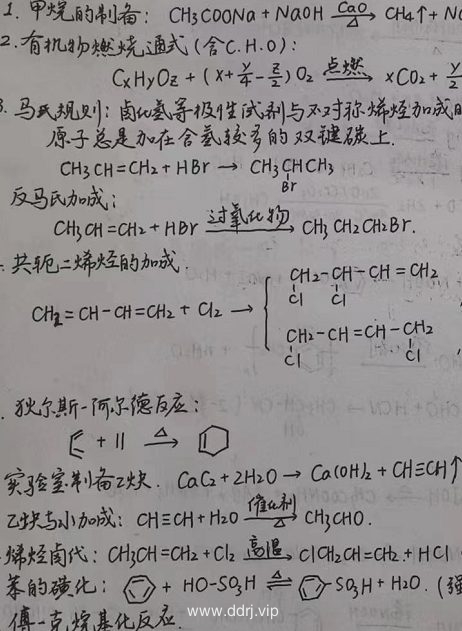 1. 甲烷的制备: CH3COONa + NaOH CaO △ → CH4↑ + N
2. 有机物燃烧通式(含C.H.O):
CxHyOz + (x+y/4-z/2)O2 点燃 → xCO2 + y/2
马氏规则: 卤化氢等极性试剂与不对称烯烃加成
原子总是加在含氢较多的双键碳上.
CH3CH=CH2 + HBr → CH3CHCH3
Br
反马氏加成:
CH3CH=CH2 + HBr 过氧化物 → CH3CH2CH2Br.
共轭二烯烃的加成
CH2-CH-CH=CH2
Cl Cl
CH2=CH-CH=CH2 + Cl2 → {
CH2-CH=CH-CH2
Cl Cl
狄尔斯-阿尔德反应:
+ || △ →
实验室制备乙炔. CaC2 + 2H2O → Ca(OH)2 + CH≡CH↑
乙炔与水加成: CH≡CH + H2O 催化剂 △ → CH3CHO.
烯烃卤代: CH3CH=CH2 + Cl2 高温 → ClCH2CH=CH2 + HCl
苯的磺化: + HO-SO3H △ ⇌ -SO3H + H2O. (
傅-克烷基化反应.
www.ddrj.vip